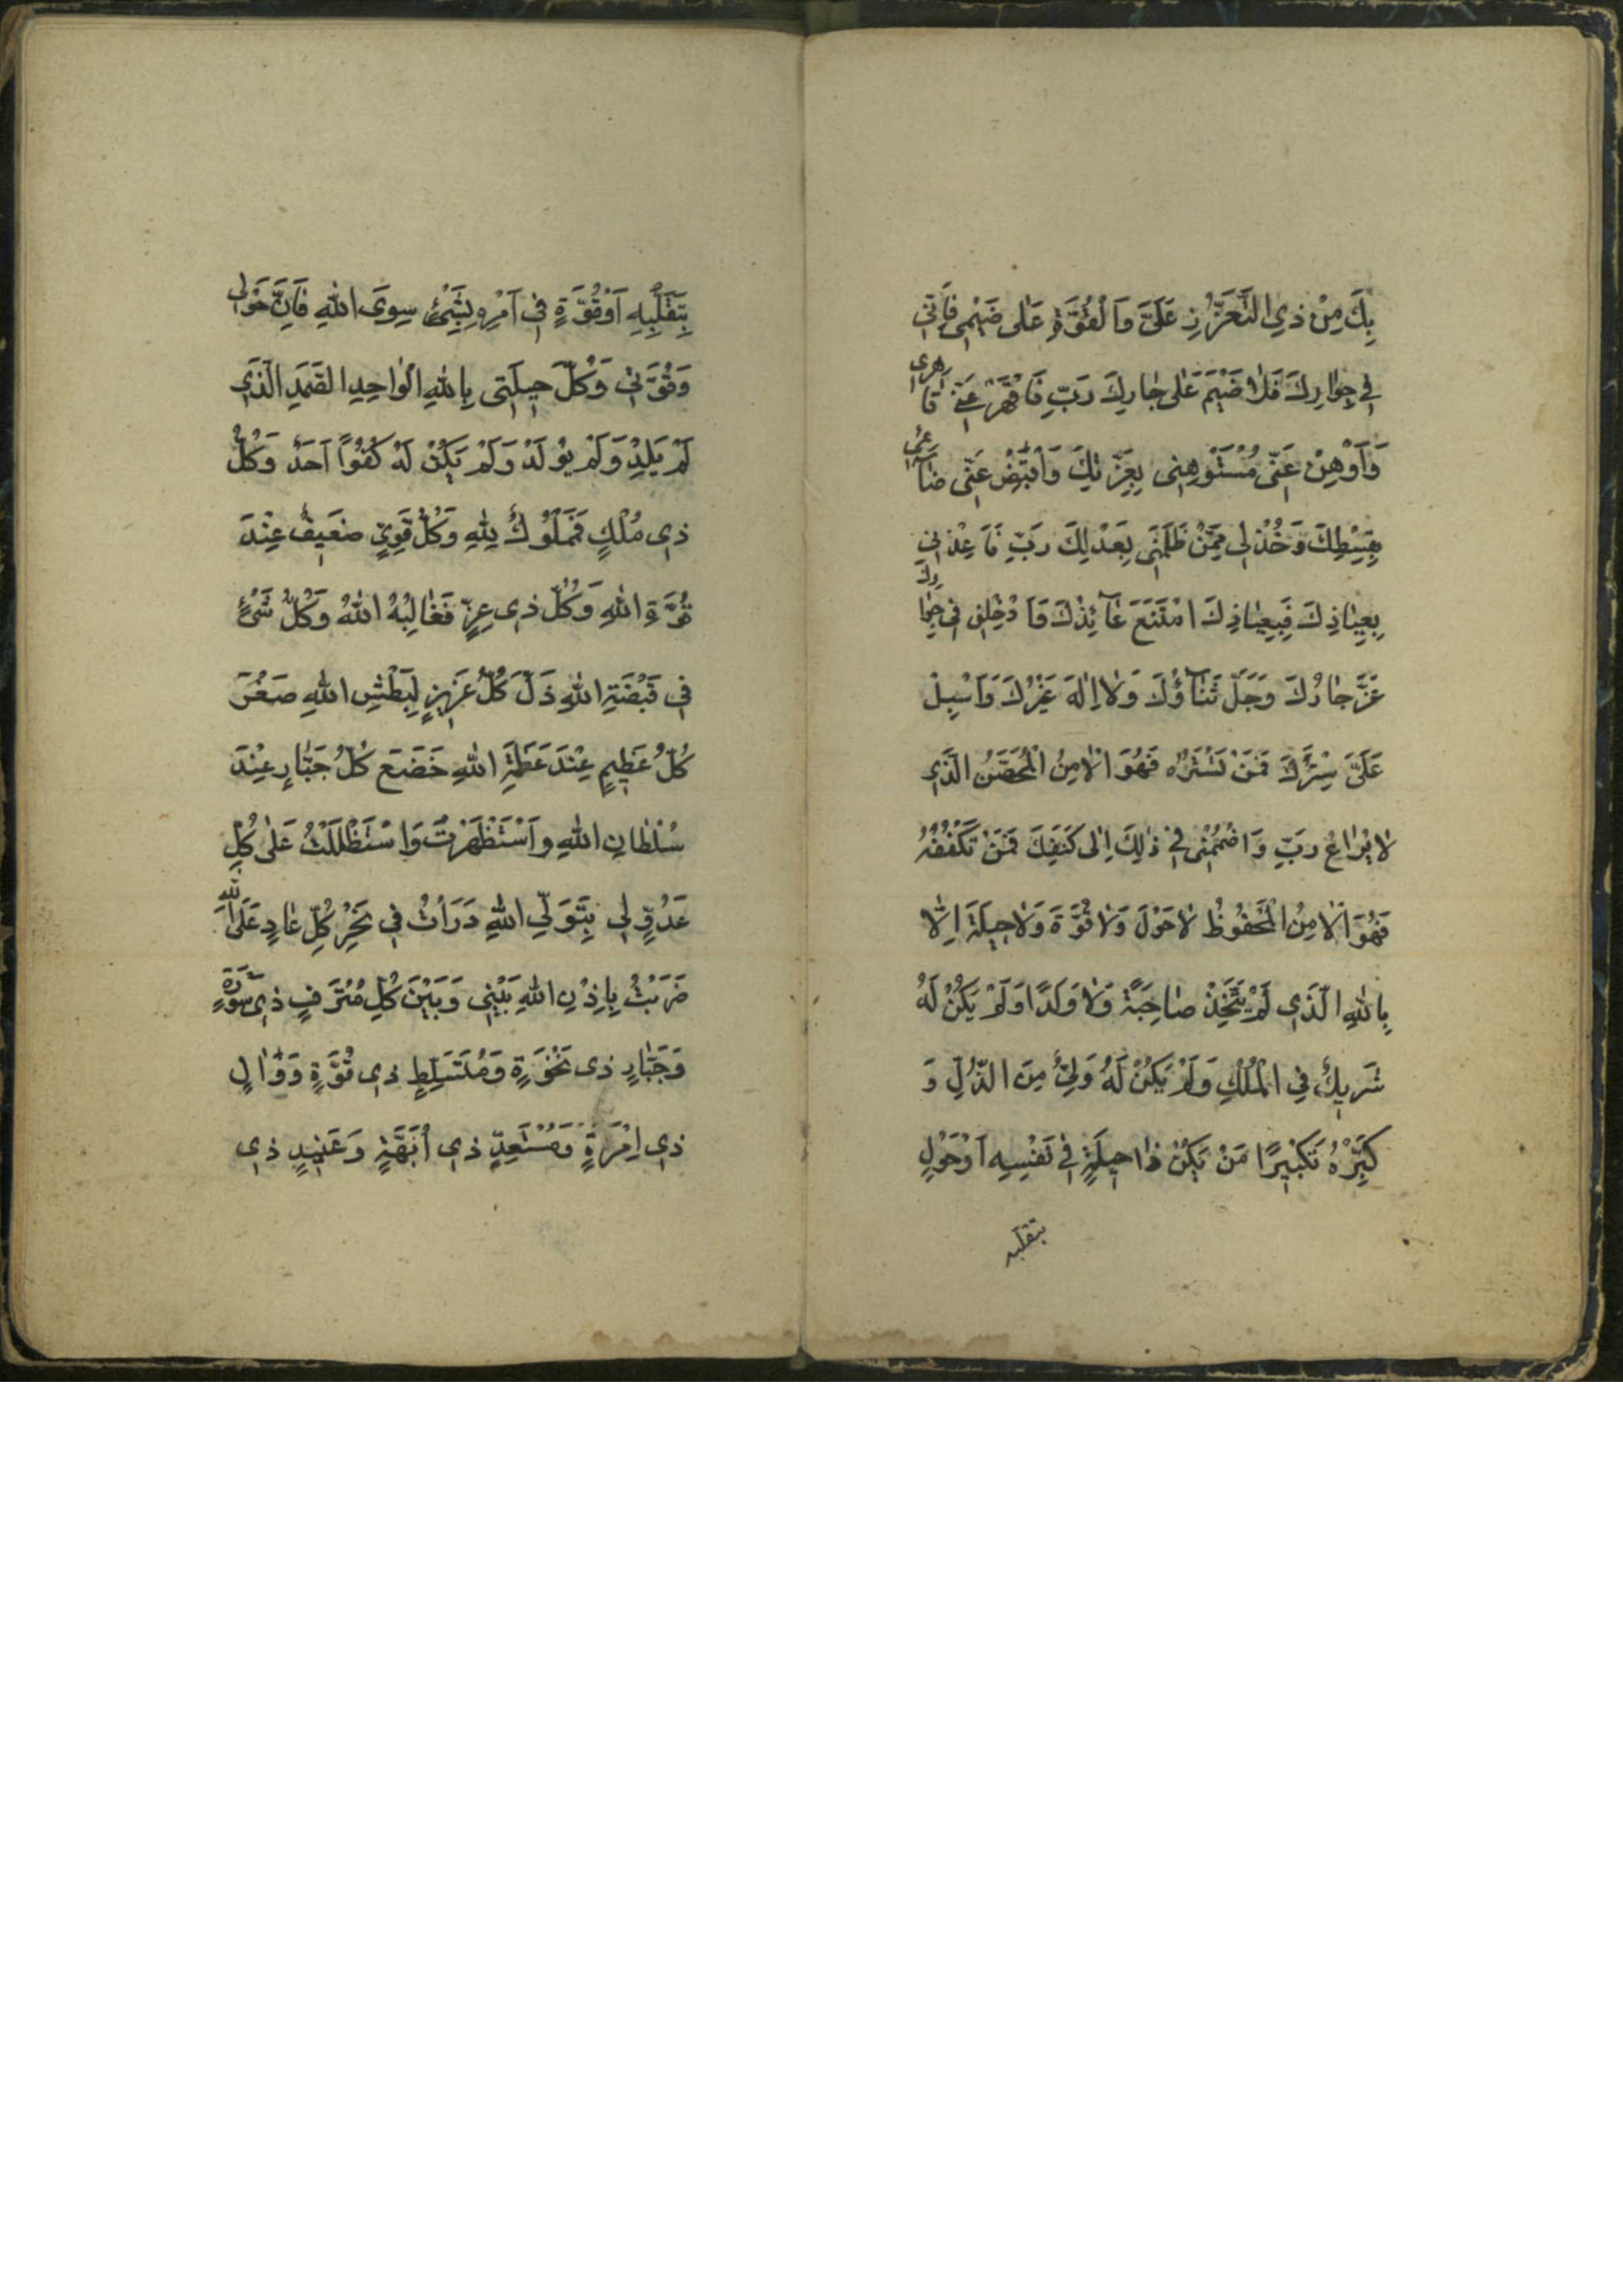 بِكَ مِنْ ذِي التَّعَزُّزِ عَلَيَّ وَالْقُوَّةِ عَلٰى ضَيْمِي فَاِنِّي
فِي جِوٰارِكَ فَلاٰ ضَيْمَ عَلٰى جٰارِكَ رَبِّ فَاقْهَرْ عَنّي قٰاهِرِي
وَاَوْهِنْ عَنّي مُسْتَوْهِنِي بِعِزَّتِكَ وَاقْبِضْ عَنّي ضٰآئِمِي
بِقِسْطِكَ وَخُذْ لِي مِمَّنْ ظَلَمَنِي بِعَدْلِكَ رَبِّ فَاَعِذْنِي
بِعِيٰاذِكَ فَبِعِيٰاذِكَ امْتَنَعَ عٰآئِذُكَ وَاَدْخِلْنِي فِي جِوٰارِكَ
عَزَّ جٰارُكَ وَجَلَّ ثَنٰآؤُكَ وَلاٰ اِلٰهَ غَيْرُكَ وَاَسْبِلْ
عَلَيَّ سِتْرَكَ فَمَنْ تَسْتُرْهُ فَهُوَ الْاٰمِنُ الْمُحَصَّنُ الَّذِي
لاٰ يُرٰاعُ رَبِّ وَاضْمُمْنِي فِي ذٰلِكَ اِلٰى كَنَفِكَ فَمَنْ تَكْنُفْهُ
فَهُوَ الْاٰمِنُ الْمَحْفُوظُ لاٰ حَوْلَ وَلاٰ قُوَّةَ وَلاٰ حِيلَةَ اِلّٰا
بِاللّٰهِ الَّذِي لَمْ يَتَّخِذْ صٰاحِبَةً وَلاٰ وَلَدًا وَلَمْ يَكُنْ لَهُ
شَرِيكٌ فِي الْمُلْكِ وَلَمْ يَكُنْ لَهُ وَلِيٌّ مِنَ الذُّلِّ وَ
كَبِّرْهُ تَكْبِيرًا مَنْ يَكُنْ ذٰا حِيلَةٍ فِي نَفْسِهِ اَوْ حَوْلٍ
بتقلبه
بِتَقَلُّبِهِ اَوْ قُوَّةٍ فِي اَمْرِهِ بِشَيْءٍ سِوَى اللّٰهِ فَاِنَّ حَوْلِي
وَقُوَّتِي وَكُلَّ حِيلَتِي بِاللّٰهِ الْوٰاحِدِ الصَّمَدِ الَّذِي
لَمْ يَلِدْ وَلَمْ يُولَدْ وَلَمْ يَكُنْ لَهُ كُفُوًا اَحَدٌ وَكُلُّ
ذِي مُلْكٍ فَمَمْلُوكٌ لِلّٰهِ وَكُلُّ قَوِيٍّ ضَعِيفٌ عِنْدَ
قُوَّةِ اللّٰهِ وَكُلُّ ذِي عِزٍّ فَغٰالِبُهُ اللّٰهُ وَكُلُّ شَيْءٍ
فِي قَبْضَةِ اللّٰهِ ذَلَّ كُلُّ عَزِيزٍ لِبَطْشِ اللّٰهِ صَغُرَ
كُلُّ عَظِيمٍ عِنْدَ عَظَمَةِ اللّٰهِ خَضَعَ كُلُّ جَبّٰارٍ عِنْدَ
سُلْطٰانِ اللّٰهِ وَاسْتَظْهَرْتُ وَاسْتَظْلَلْتُ عَلٰى كُلِّ
عَدُوٍّ لِي بِتَوَلِّي اللّٰهِ دَرَاْتُ فِي نَحْرِ كُلِّ عٰادٍ عَلَيَّ اللّٰه
ضَرَبْتُ بِاِذْنِ اللّٰهِ بَيْنِي وَبَيْنَ كُلِّ مُتْرَفٍ ذِي سَوْرَةٍ
وَجَبّٰارٍ ذِي نَخْوَةٍ وَمُتَسَلِّطٍ ذِي قُوَّةٍ وَوٰالٍ
ذِي اِمْرَةٍ وَمُسْتَعِدٍّ ذِي اُبَّهَةٍ وَعَنِيدٍ ذِي